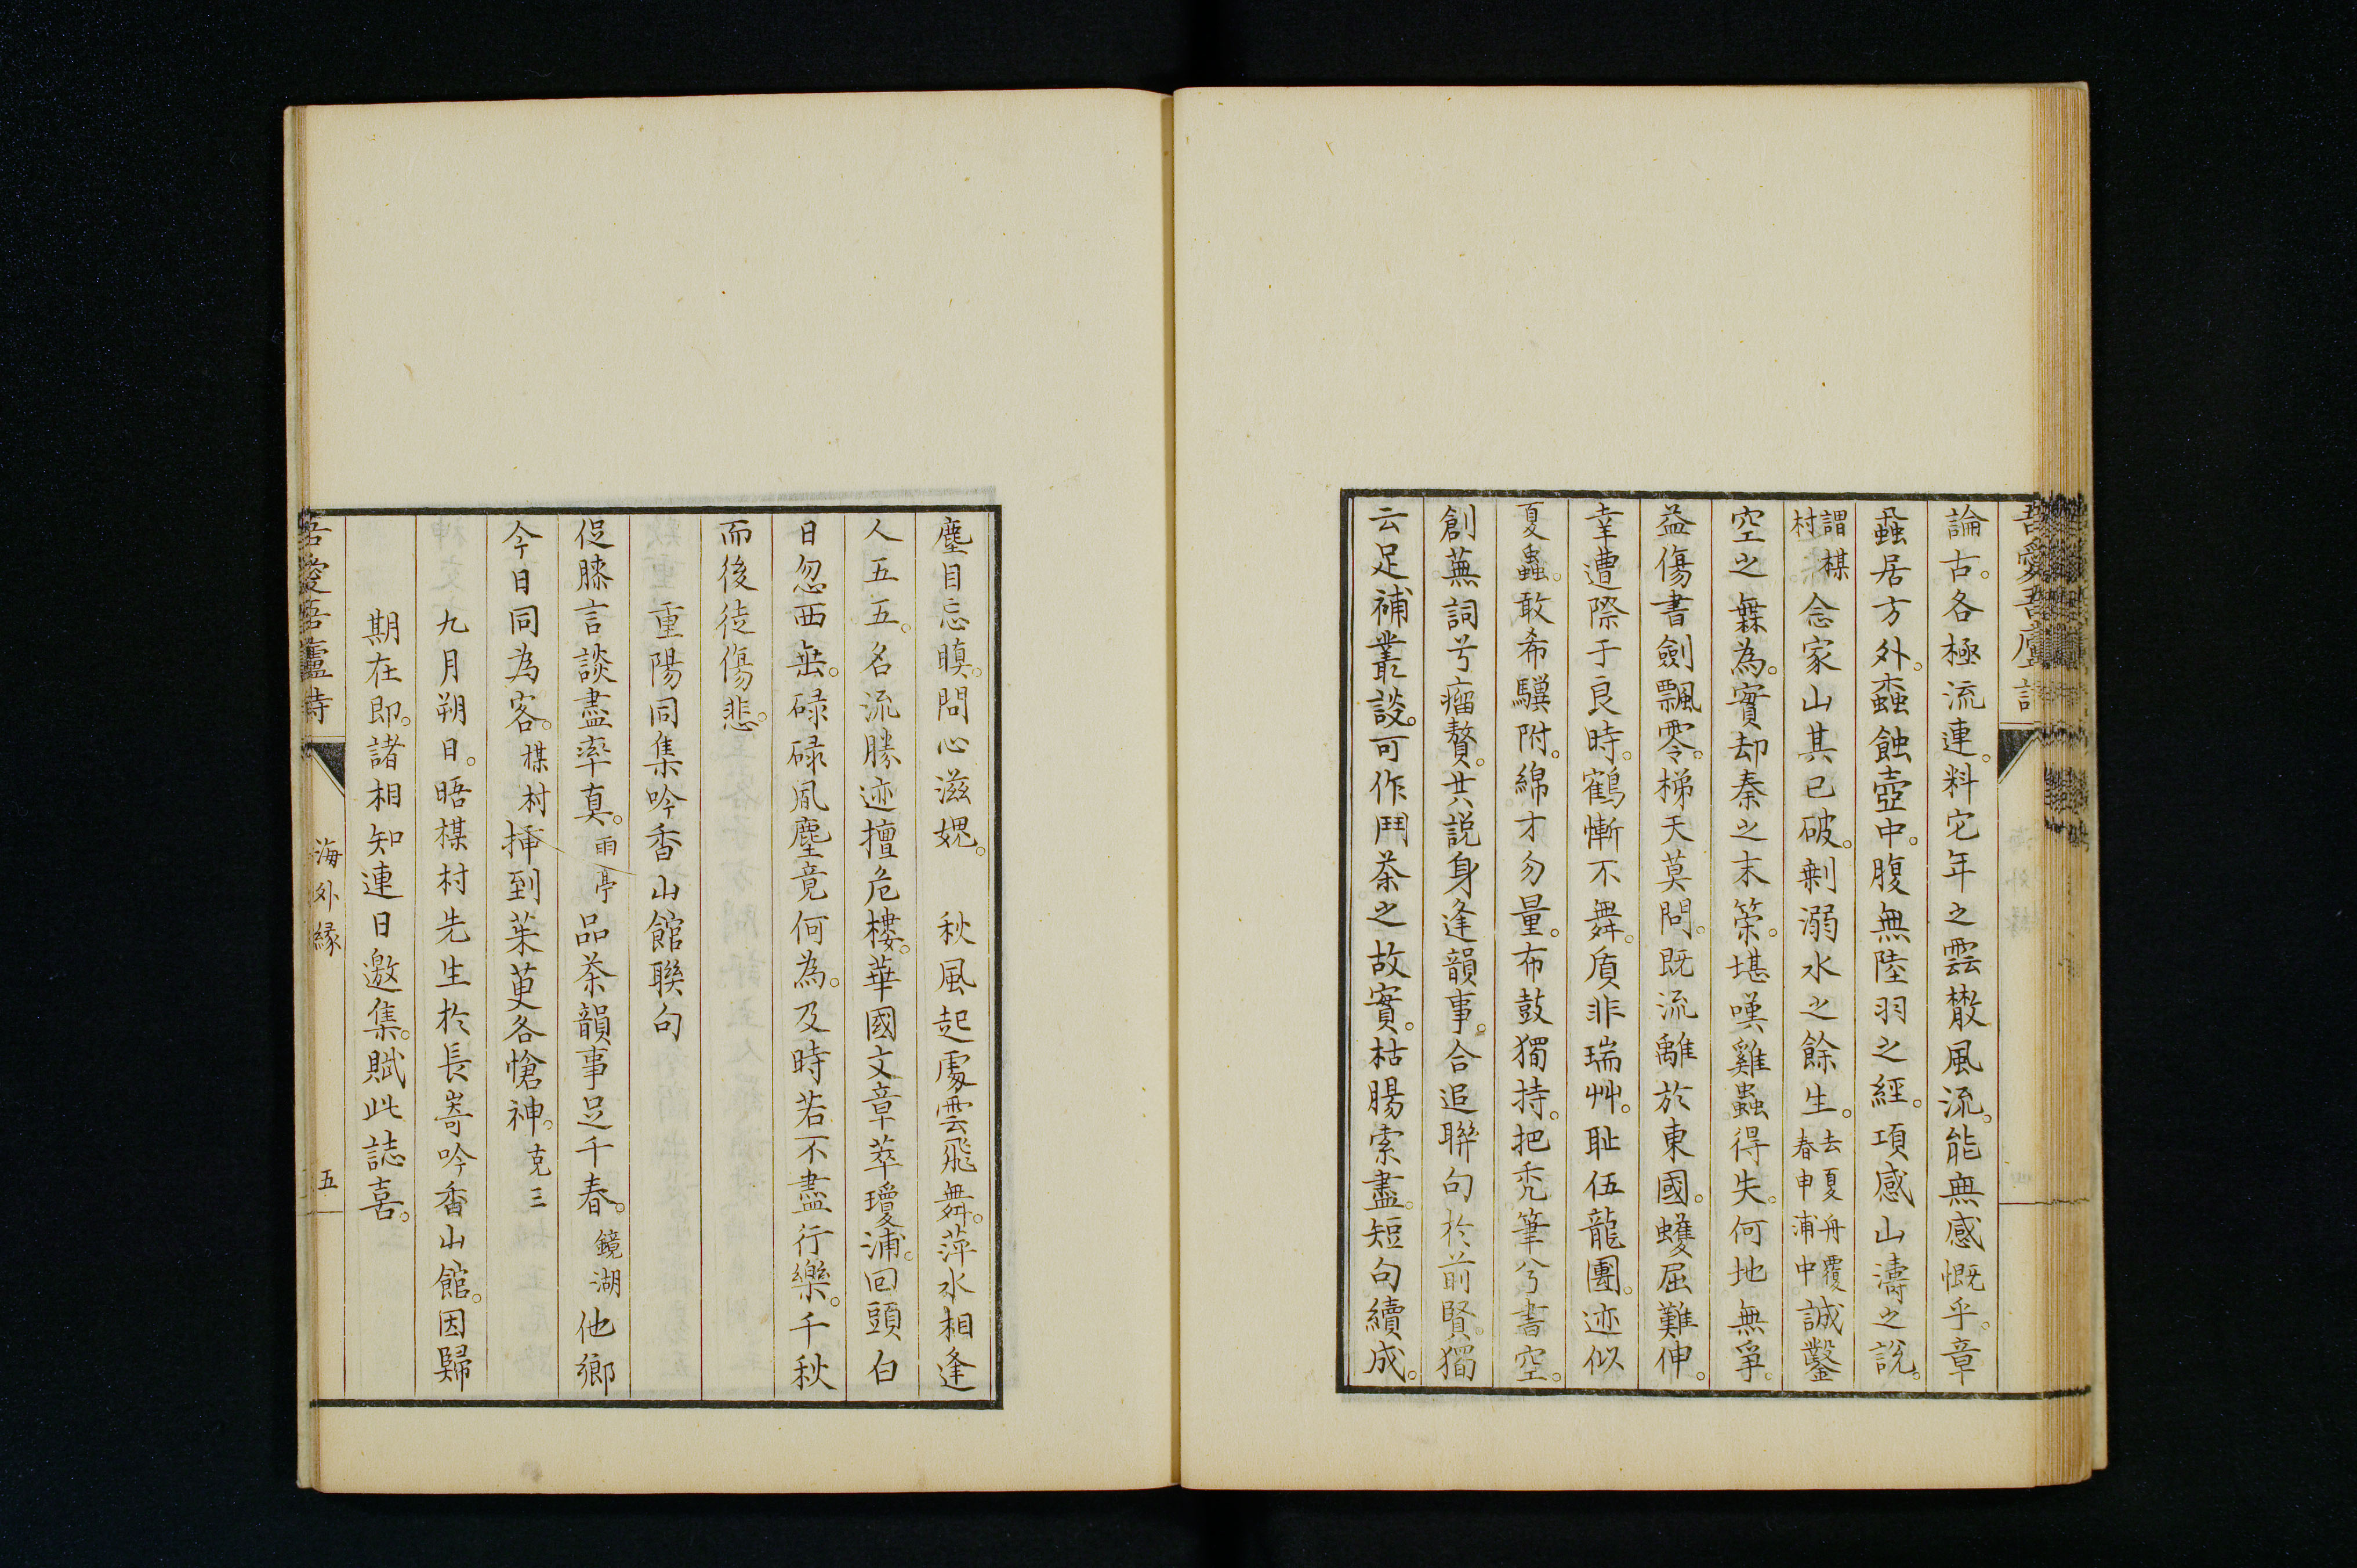 吾愛吾廬詩
論古。各極流連。料它年之雲散風流。能無感慨乎。章
蝨居方外。蠹蝕壺中。腹無陸羽之經。項感山濤之說。
謂楳村 念家山其已破。剩溺水之餘生。去夏舟覆春申浦中 誠鑿
空之無為。實却秦之末策。堪嘆雞蟲得失。何地無爭。
益傷書劍飄零。梯天莫問。既流離於東國。蠖屈難伸。
幸遭際于良時。鶴慚不舞。質非瑞艸。耻伍龍團。迹似
夏蟲。敢希驥附。綿才勿量。布鼓獨持。把禿筆兮書空。
創蕪詞兮瘤贅。共說身逢韻事。合追聯句於前賢。獨
云足補叢談。可作鬥茶之故實。枯腸索盡。短句續成。
塵目忘瞋。問心滋媿。 秋風起處雲飛舞。萍水相逢
人五五。名流勝迹擅危樓。華國文章萃瓊浦。回頭白
日忽西垂。碌碌風塵竟何為。及時若不盡行樂。千秋
而後徒傷悲。
重陽同集吟香山館聯句
促膝言談盡率真。雨亭 品茶韻事足千春。鏡湖 他鄉
今日同為客。楳村 插到茱萸各愴神。克三
九月朔日。晤楳村先生於長崎吟香山館。因歸
期在即。諸相知連日邀集。賦此誌喜。
吾愛吾廬詩 海外緣 五